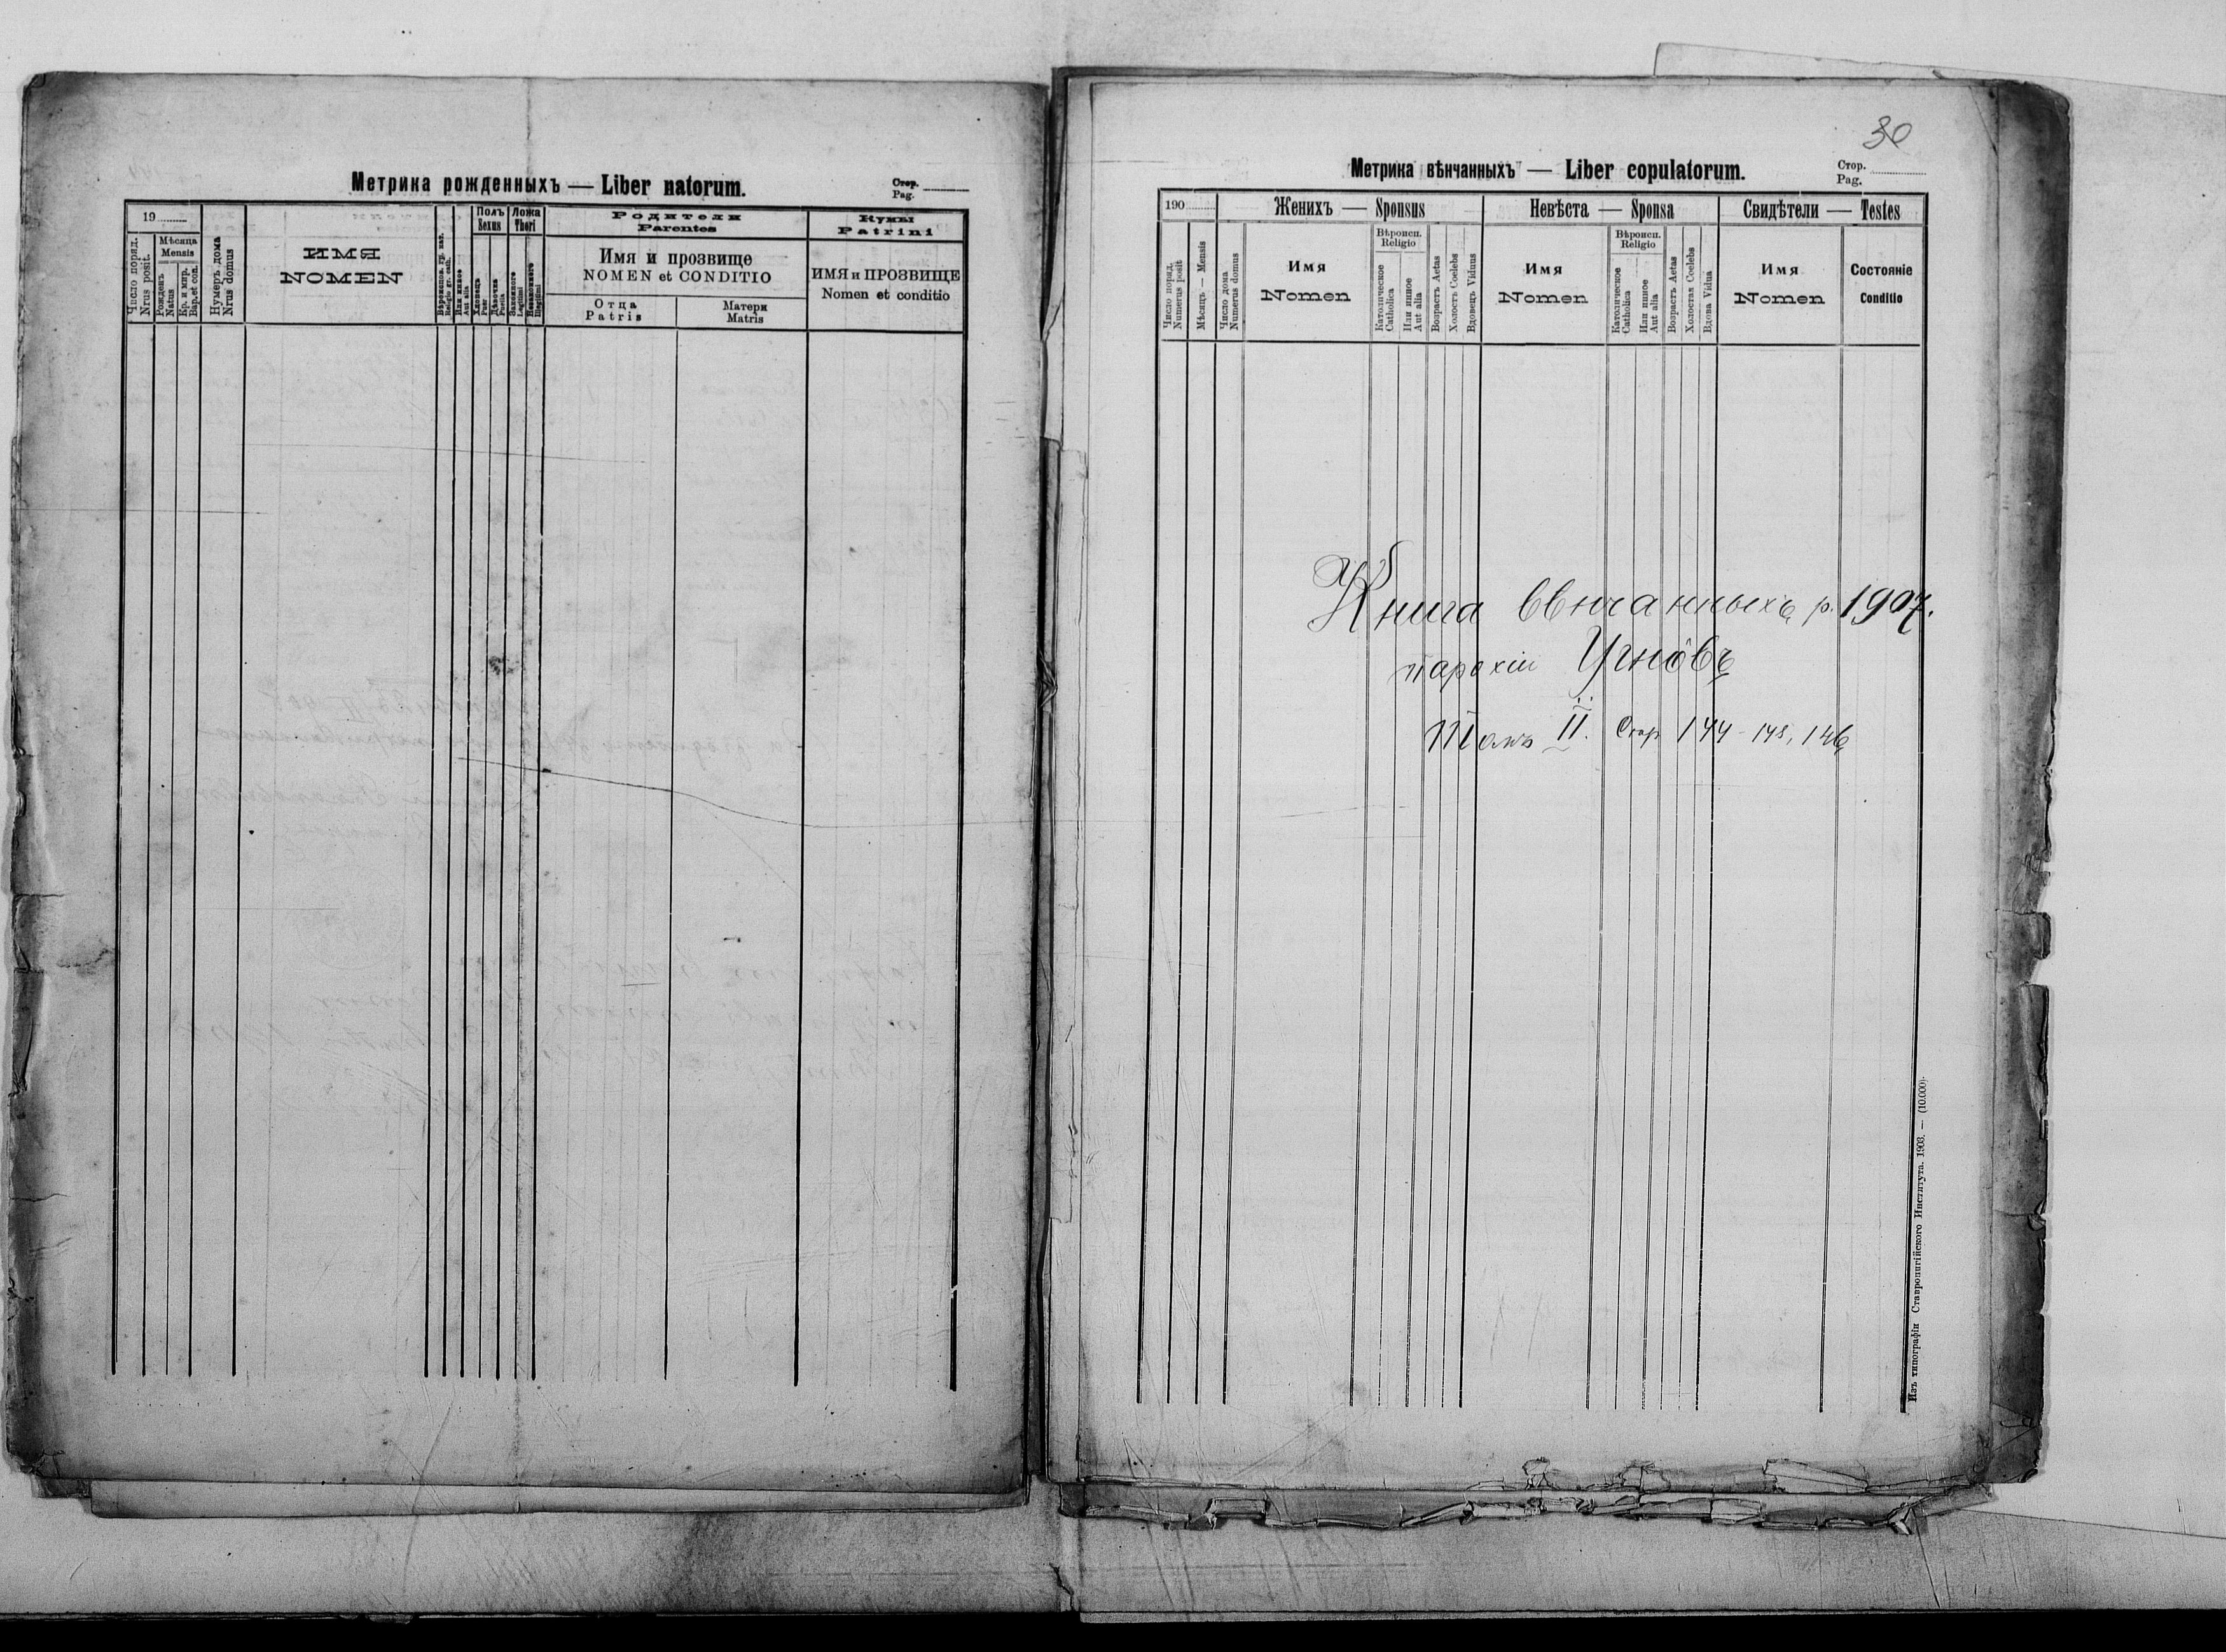 Метрика рожденныхъ — Liber natorum.
Стор.
Pag.
19
Число поряд.
Nrus posit.
Мѣсяца
Mensis
Рожденъ
Natus
Кр. и мир.
Bap. et con.
Нумеръ дома
Nrus domus
ИМЯ
NOMEN
Или инное
Aut alia
Полъ
Sexus
Хлопецъ
Puer
Дѣвочка
Puella
Ложа
Thori
Законного
Legitimi
Незаконного
Illegitimi
Родители
Parentes
Имя и прозвище
NOMEN et CONDITIO
Отца
Patris
Матери
Matris
Кумы
Patrini
ИМЯ и ПРОЗВИЩЕ
Nomen et conditio
30
Метрика вѣнчанныхъ — Liber copulatorum.
Стор.
Pag.
190
Число поряд.
Numerus posit
Мѣсяцъ — Mensis
Число дома
Numerus domus
Женихъ — Sponsus
Имя
Nomen
Вѣроисп.
Religio
Католическое
Catholica
Или инное
Aut alia
Возрастъ Aetas
Холостъ Coelebs
Вдовецъ Viduus
Невѣста — Sponsa
Имя
Nomen
Вѣроисп.
Religio
Католическое
Catholica
Или инное
Aut alia
Возрастъ Aetas
Холостая Coelebs
Вдова Vidua
Свидѣтели — Testes
Имя
Nomen
Состояніе
Conditio
Книга вѣнчанныхъ р. 1907.
парохіи Угнôвъ
Томъ II. Стор 144 - 145, 146
Изъ типографіи Ставропигійского Института. 1903. — (10.000).